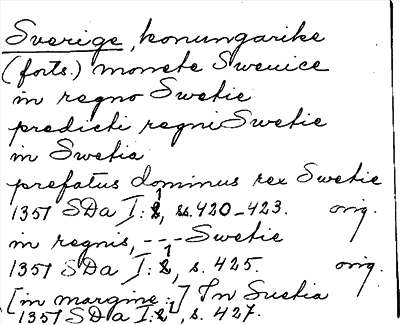 Sverige, konungarike
(forts.) monete Sweuice
in regno Swetie
predicti regni Swetie
in Swetia
prefatus dominus rex Swetie
1357 SDa I:1, ss. 420-423. orig.
in regnis, --- Swetie
1357 SDa I:1, s. 425. orig.
[in margine:] In Suetia
1357 SDa I:1, s. 427.